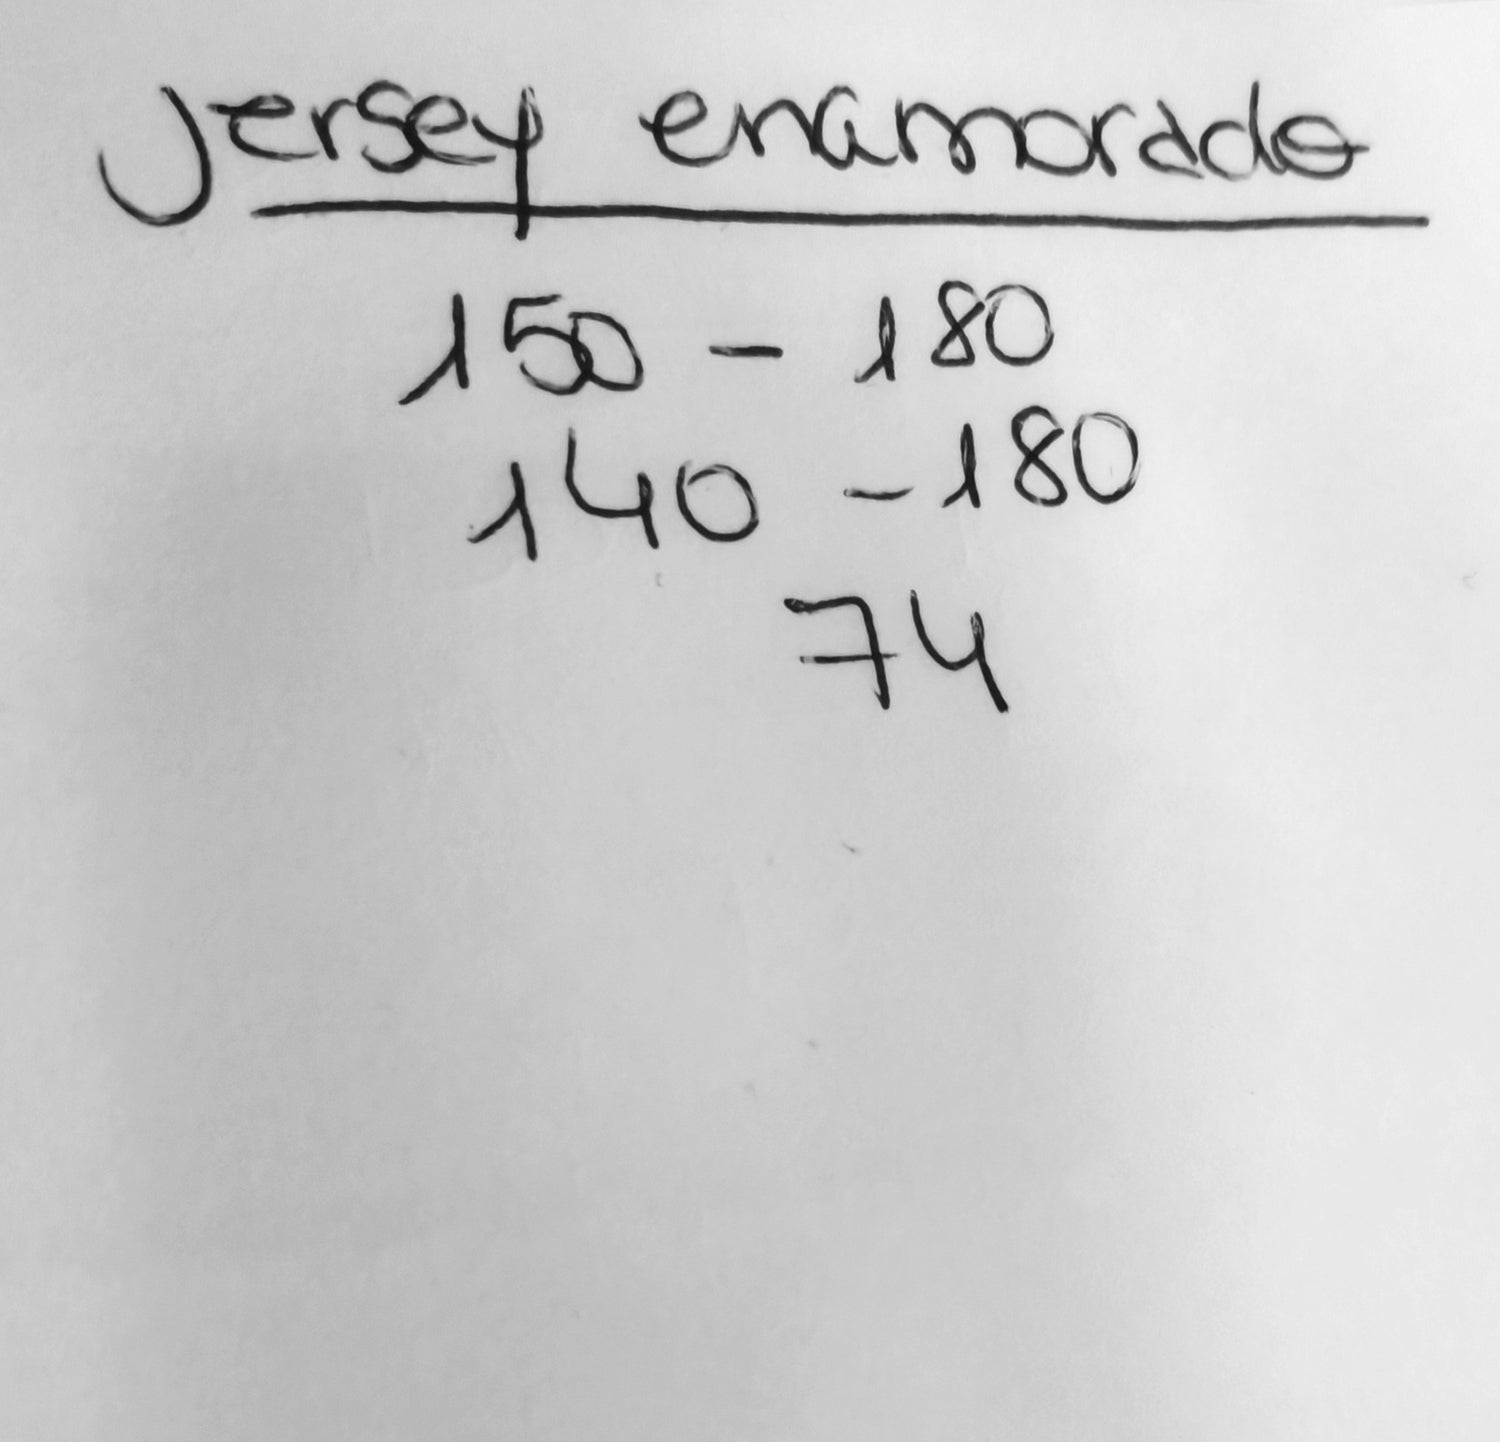 Jersey enamorado
150 - 180
140 - 180
74